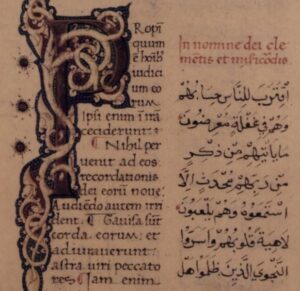 Propī
quum
ē hoīb
iudici
um eo
rum.
Ipsi enim īra
ceciderunt:
¶ Nihil per
uenit ad eos
recordationis
dei eorū noue.
Audiēdo autem irri
dent. ¶ Gauisa sūt
corda eorum: et
adiurauerunt
astra uiri peccato
res ¶ Iam enim
In nomine dei cle
mētis et misĩcōdis
اقترب للناس حسابهم
وهم في غفلة معرضون
ما ياتيهم من ذكر
من ربهم محدث الا
استمعوه وهم يلعبون
لاهية قلوبهم واسروا
النجوى الذين ظلموا هل